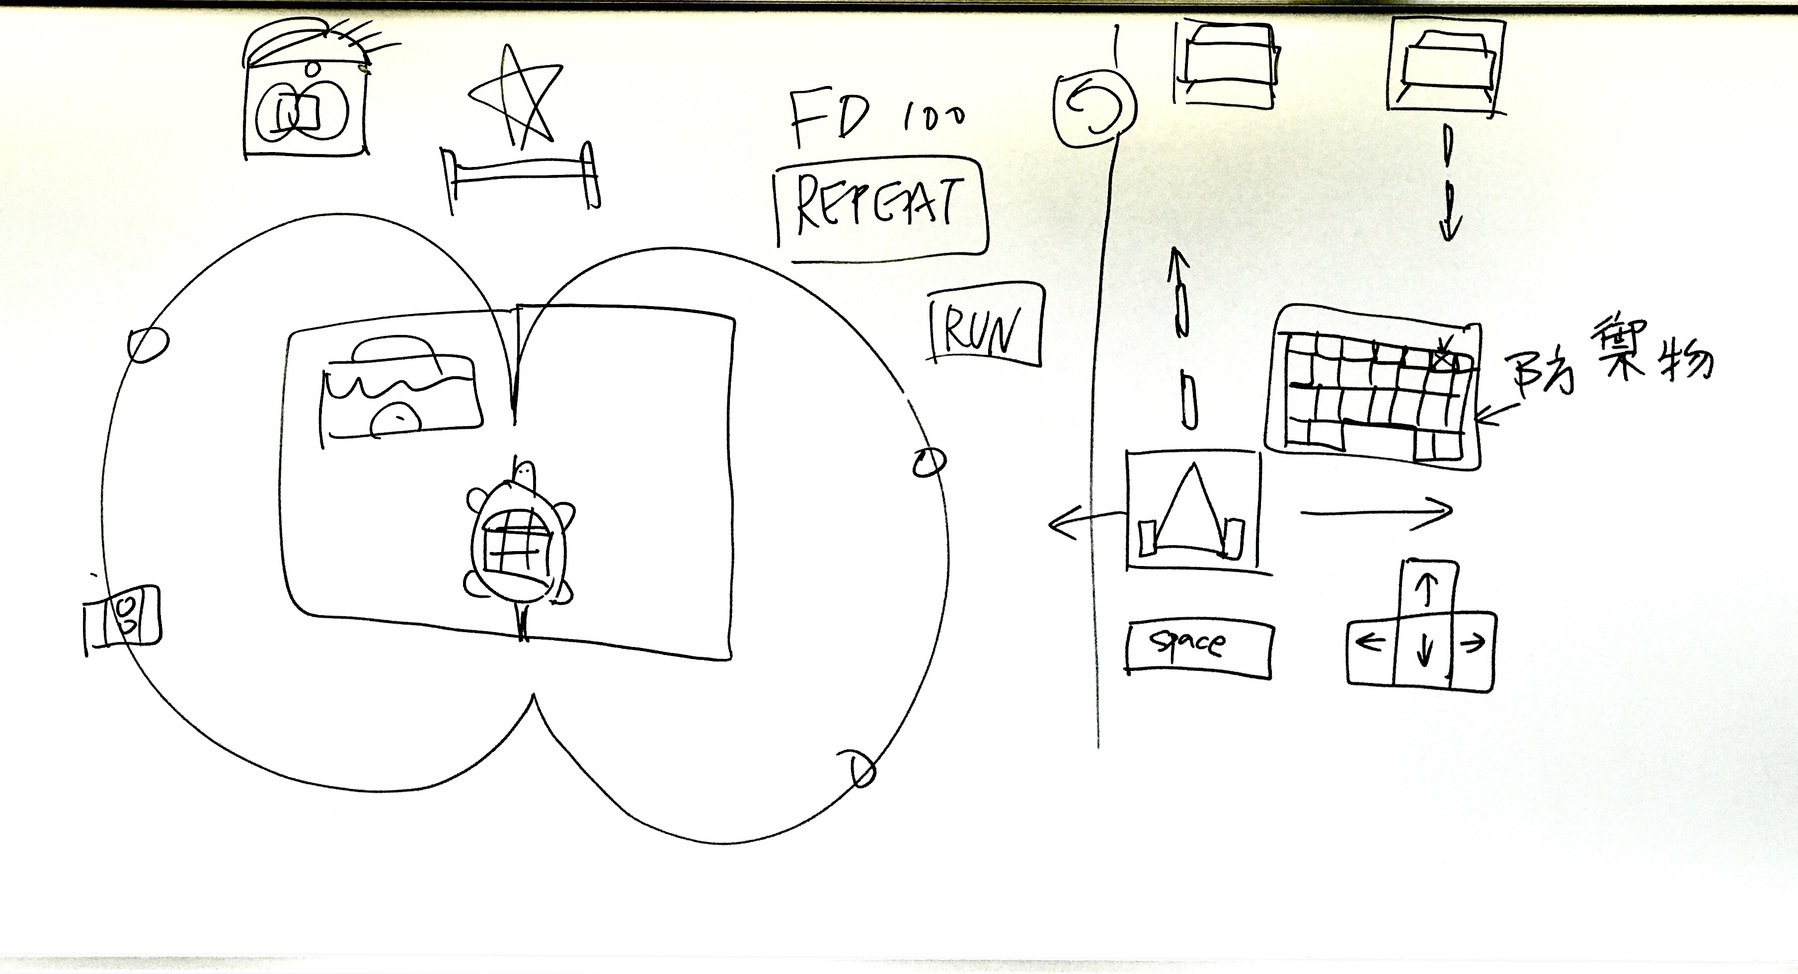 FD 100
REPEAT
RUN
防禦物
space
↑
← ↓ →